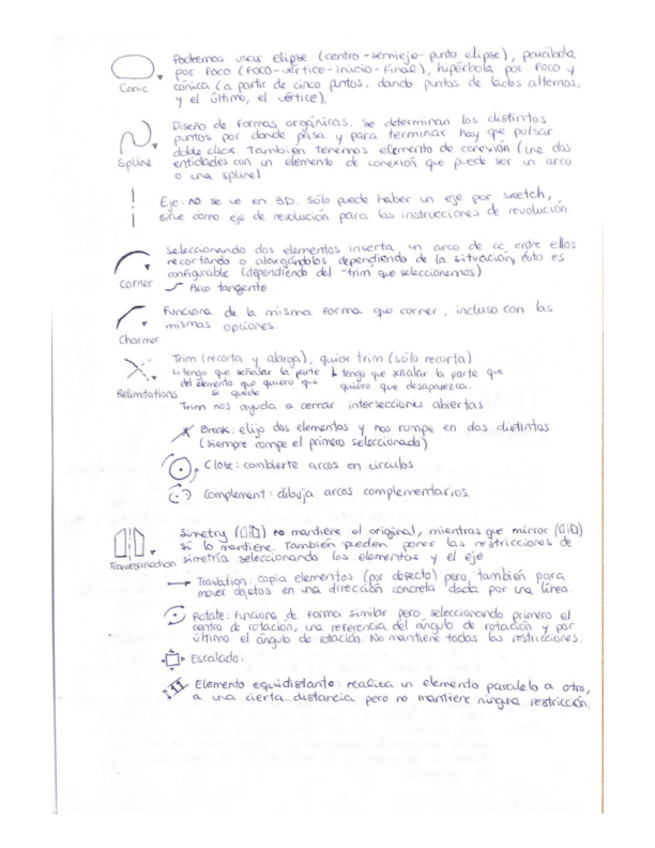 Podremos usar elipse (centro-semieje-punto elipse), parábola
por foco (foco-vértice-inicio-final), hipérbola por foco y
Conic
cónica (a partir de cinco puntos, dando puntos de lados alternos,
y el último, el vértice).
Diseño de formas orgánicas. Se determinan los distintos
puntos por donde pasa y para terminar hay que pulsar
doble click. También tenemos elemento de conexión (une dos
Spline
entidades con un elemento de conexión que puede ser un arco
o una spline)
Eje: no se ve en 3D. Sólo puede haber un eje por sketch,
sirve como eje de revolución para las instrucciones de revolución.
Seleccionando dos elementos inserta un arco de cc entre ellos
recortando o alargándolos dependiendo de la situación, esto es
configurable (dependiendo del "trim" que seleccionemos)
Corner
Arco tangente
Funciona de la misma forma que corner, incluso con las
mismas opciones.
Charmer
Trim (recorta y alarga), quick trim (sólo recorta)
↳ tengo que señalar la parte ↳ tengo que señalar la parte que
del elemento que quiero que quiero que desaparezca.
Relimitations
se quede
Trim nos ayuda a cerrar intersecciones abiertas
Break: elijo dos elementos y nos rompe en dos distintos
(siempre rompe el primero seleccionado)
Close: combierte arcos en circulos
Complement: dibuja arcos complementarios.
Simetry no mantiene el original, mientras que mirror
sí lo mantiene. También pueden poner las restricciones de
simetría seleccionando los elementos y el eje
Transformation
Traslation: copia elementos (por defecto) pero también para
mover objetos en una dirección concreta dada por una línea.
Rotate: funciona de forma similar pero seleccionando primero el
centro de rotación, una referencia del ángulo de rotación y por
último el ángulo de rotación. No mantiene todas las restricciones.
Escalado:
Elemento equidistante: realiza un elemento paralelo a otro,
a una cierta distancia pero no mantiene ninguna restricción.